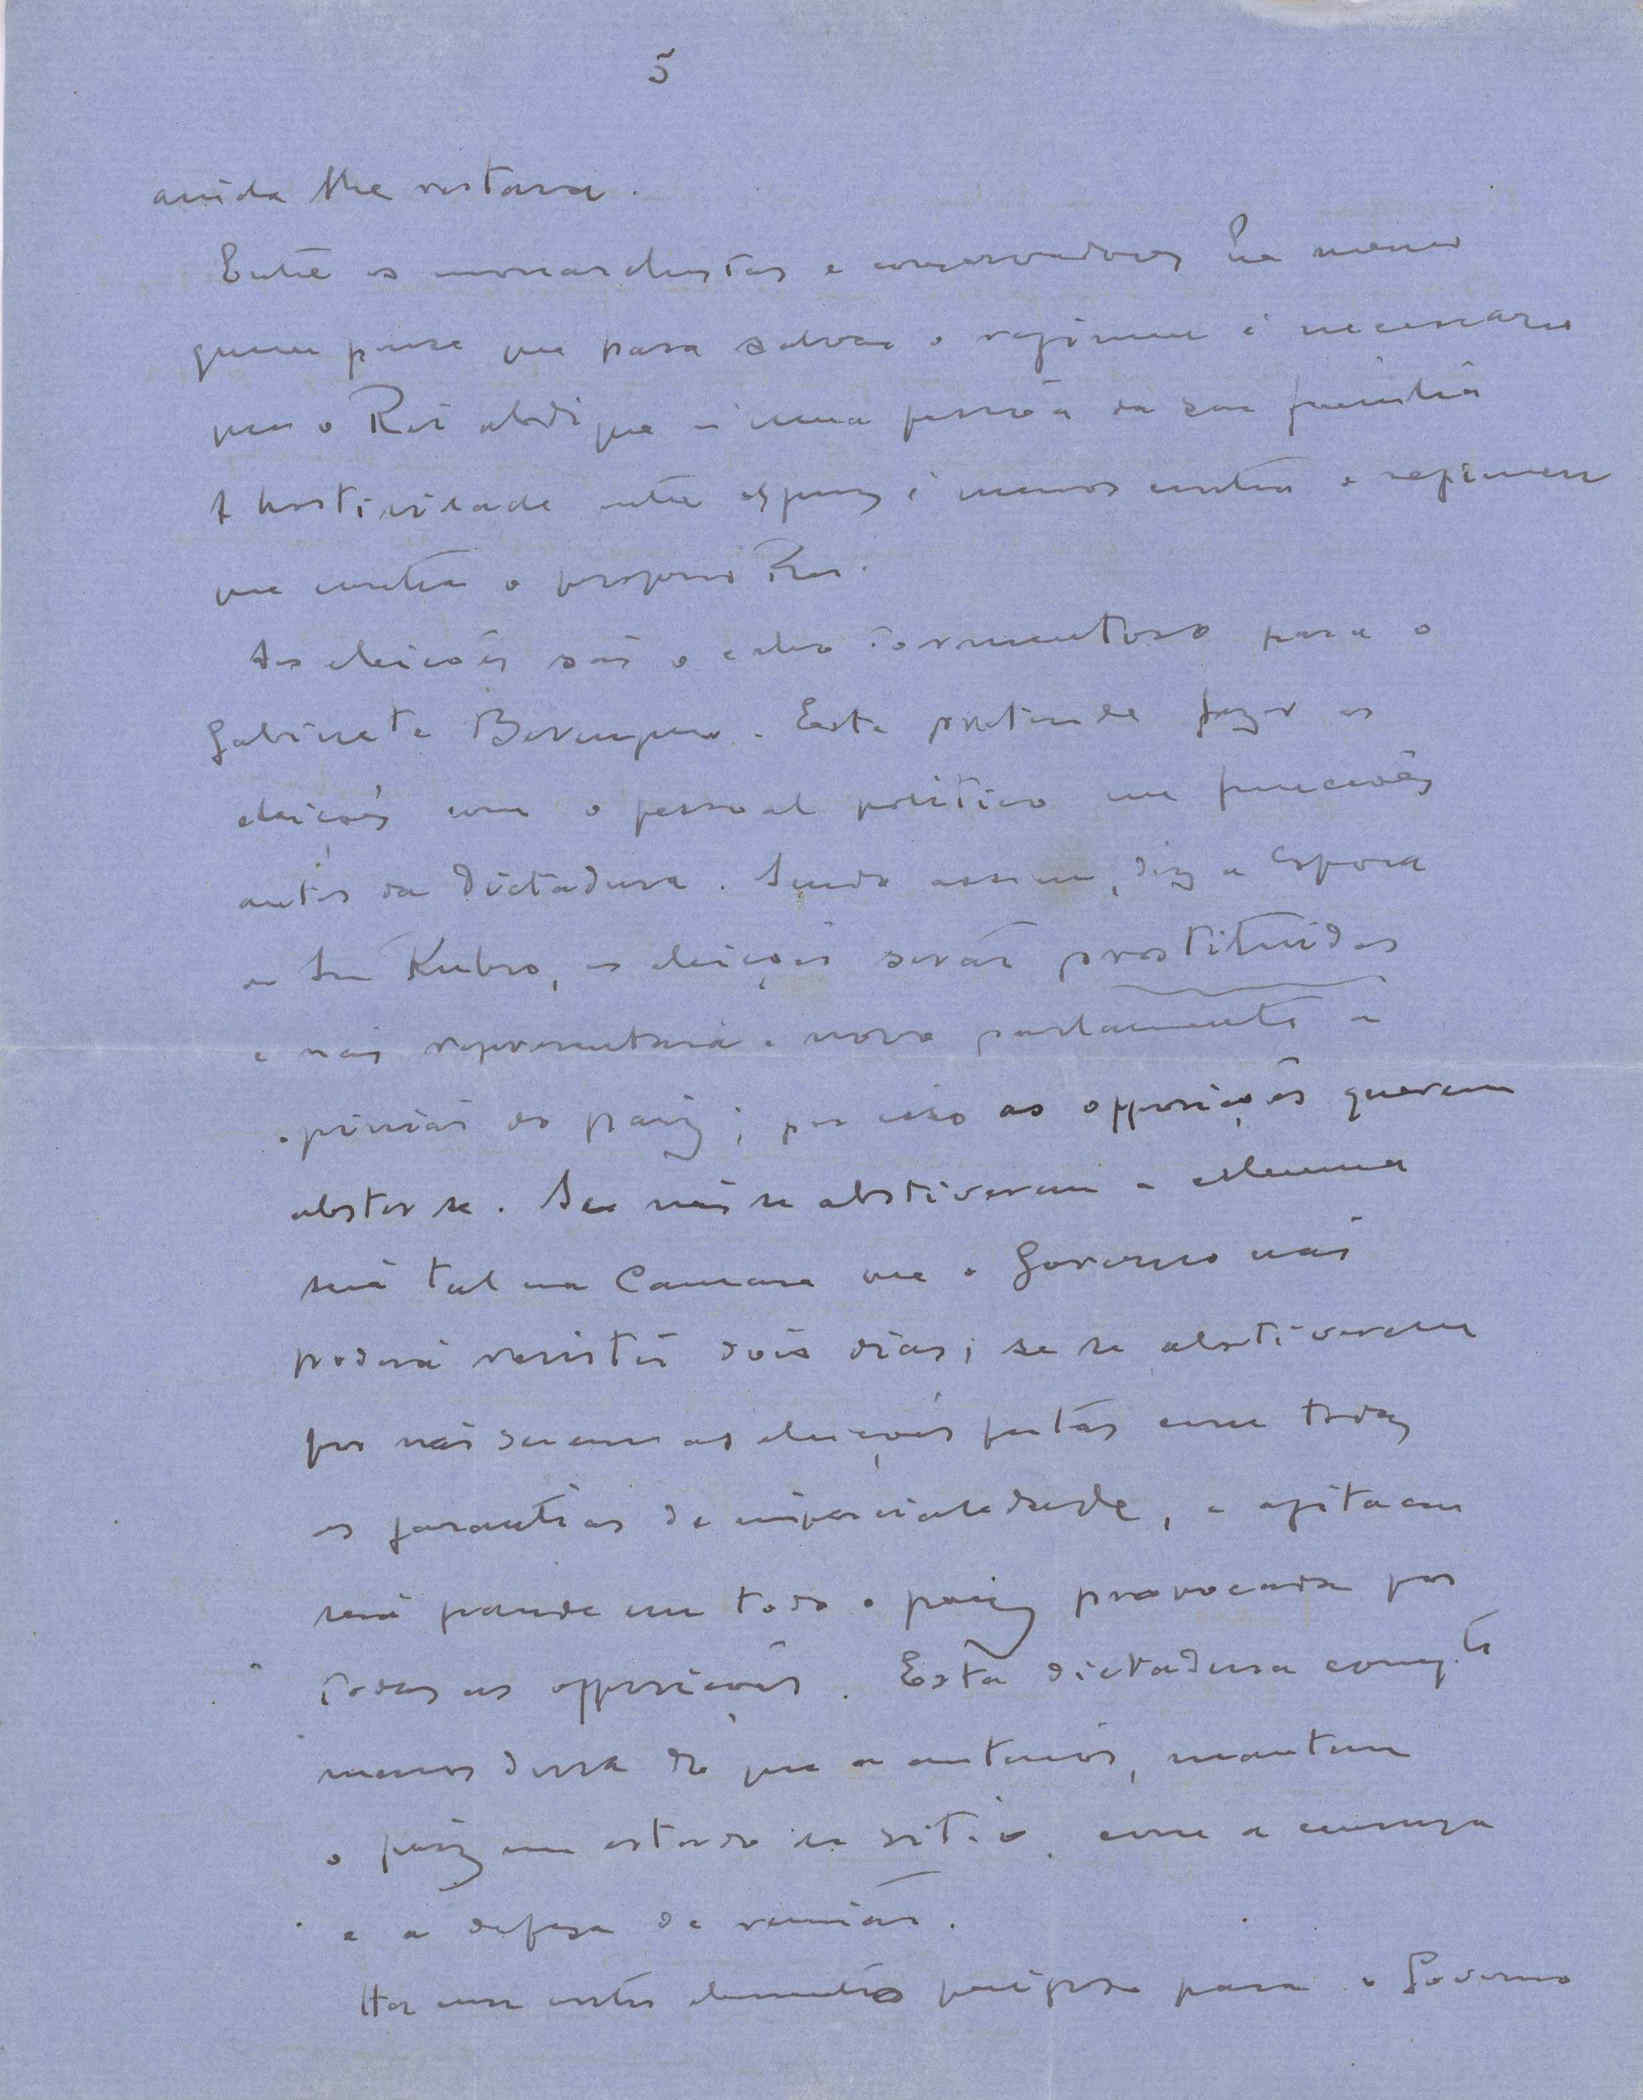 5
ainda lhe restava.
Entre os monarchistas e conservadores ha mesmo
quem pense que para salvar o regimen é necessario
que o Rei abdique n'uma pessôa da sua familia
A hostilidade entre alguns é menos contra o regimen
que contra o proprio Rei.
As eleições são o cabo tormentoso para o
Gabinete Berenguer. Este pretende fazer as
eleições com o pessoal politico em funcções
antes da Dictadura. Sendo assim, diz a
as eleições serão prostituidas
e não representará o novo parlamento a
opinião do paiz; por isso as opposições querem
abster se. Se não se abstiverem a
será tal na Camara que o Governo não
poderá resistir dois dias; se se abstiverem
por não serem as eleições feitas com todas
as garantias de imparcialidade, a agitação
será grande em todo o paiz provocada por
todas as opposições. Esta dictadura
menos dura do que a anterior, mantem
o paiz em estado de sitio, com a censura
e a defesa de reunião.
Ha um outro elemento perigoso para o Governo